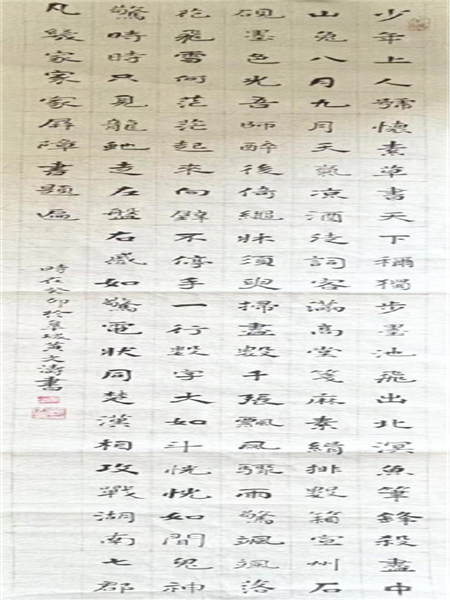 少年上人號懷素草書天下稱獨步墨池飛出北溟魚筆鋒殺盡中
山兔八月九月天氣凉酒徒詞客滿高堂箋麻素絹排數箱宣州石
硯墨色光吾師醉後倚繩牀須臾掃盡數千張飄風驟雨驚颯颯落
花飛雪何茫茫起來向壁不停手一行數字大如斗怳怳如聞鬼神
驚時只見龍虵走左盤右蹙如驚電狀同楚漢相攻戰湖南七郡
凡幾家家家屏障書題遍
時在癸卯於阜城文濤書